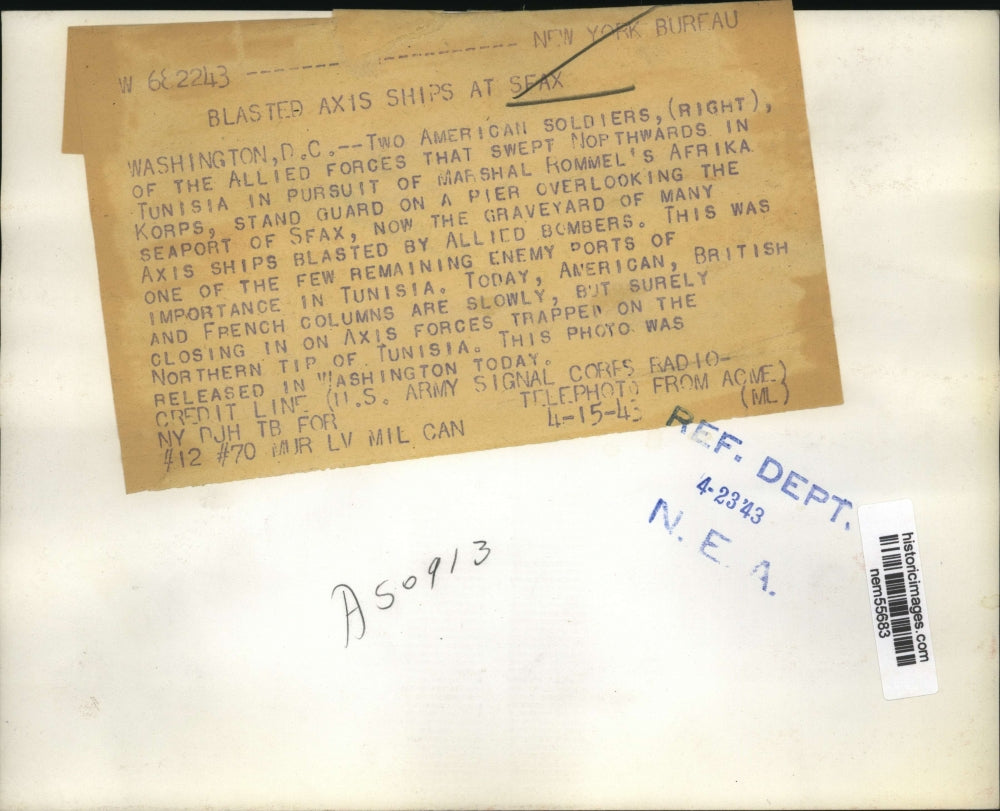 NEW YORK BUREAU
W 682243 ---------- ---------------
BLASTED AXIS SHIPS AT SFAX
WASHINGTON, D.C.--TWO AMERICAN SOLDIERS, (RIGHT),
OF THE ALLIED FORCES THAT SWEPT NORTHWARDS IN
TUNISIA IN PURSUIT OF MARSHAL ROMMEL'S AFRIKA
KORPS, STAND GUARD ON A PIER OVERLOOKING THE
SEAPORT OF SFAX, NOW THE GRAVEYARD OF MANY
AXIS SHIPS BLASTED BY ALLIED BOMBERS. THIS WAS
ONE OF THE FEW REMAINING ENEMY PORTS OF
IMPORTANCE IN TUNISIA. TODAY, AMERICAN, BRITISH
AND FRENCH COLUMNS ARE SLOWLY, BUT SURELY
CLOSING IN ON AXIS FORCES TRAPPED ON THE
NORTHERN TIP OF TUNISIA. THIS PHOTO WAS
RELEASED IN WASHINGTON TODAY.
CREDIT LINE (U.S. ARMY SIGNAL CORPS RADIO-
TELEPHOTO FROM ACME)
NY DJH TB FOR 4-15-43 (ML)
#12 #70 MUR LV MIL CAN
REF. DEPT.
4-23'43
N. E. A.
A50913
historicimages.com
nem55683